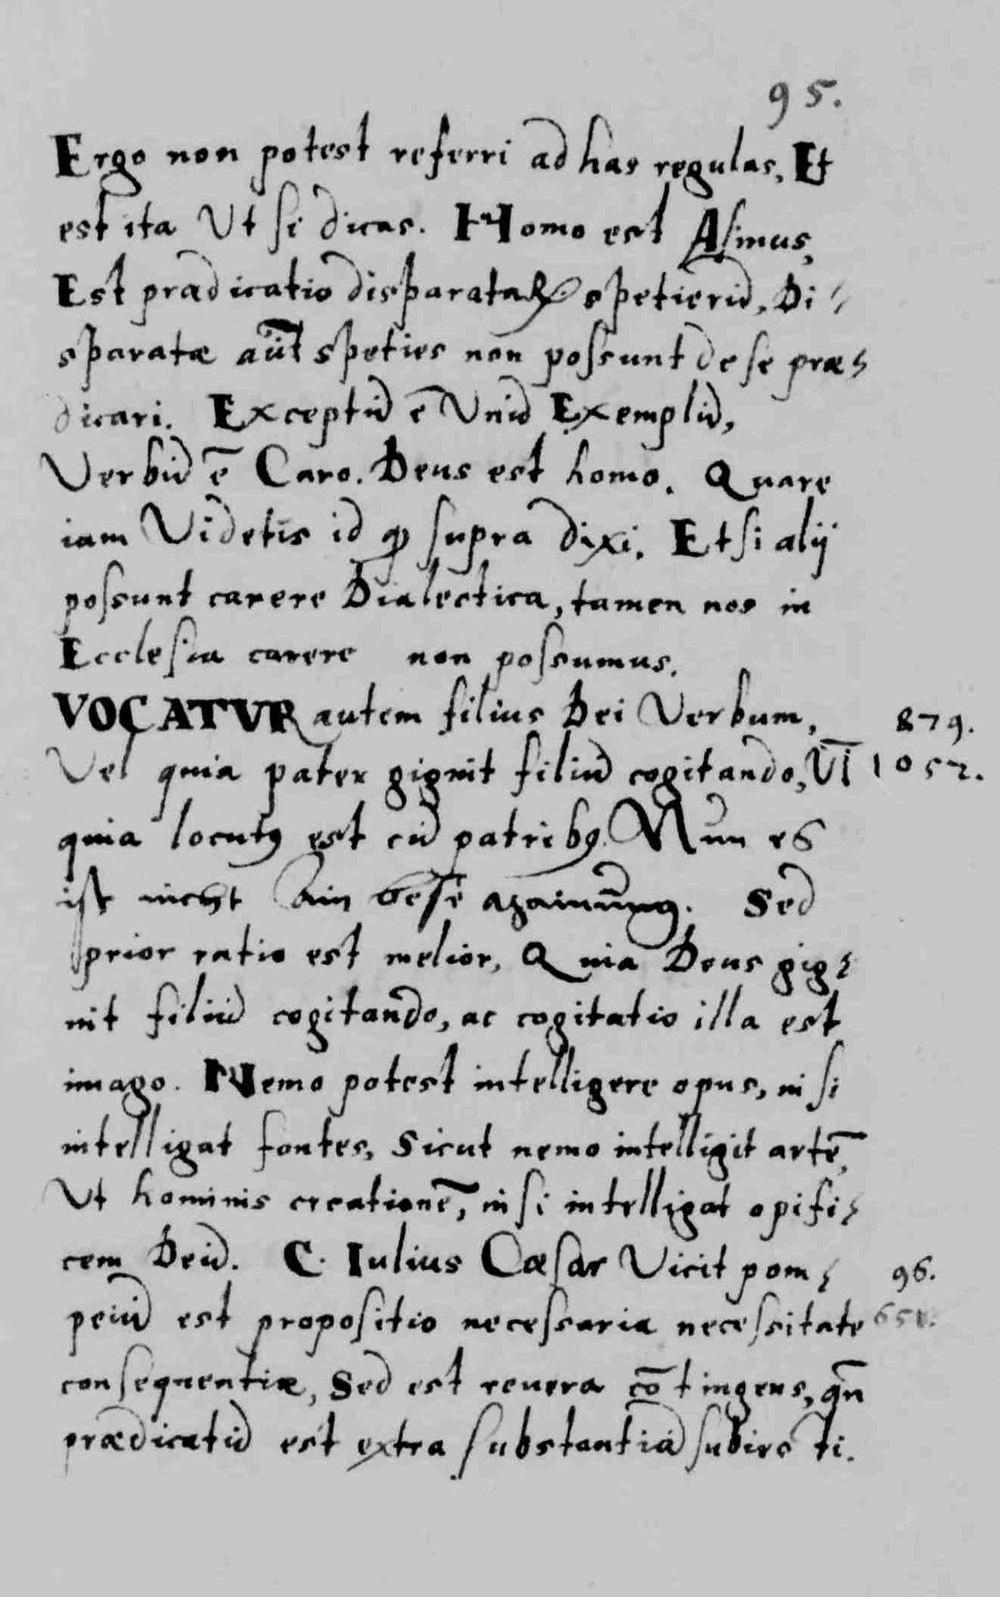 95.
Ergo non potest referri ad has regulas, Et
est ita Ut si dicas. Homo est Asinus,
Est prædicatio disparataꝝ spetierū, Di-
sparatæ aūt speties non possunt de se præ-
dicari. Exceptū ē Unū Exemplū,
Verbū ē Caro. Deus est homo. Quare
iam Videtis id qđ supra dixi, Etsi alij
possunt carere Dialectica, tamen nos in
Ecclesia carere non possumus.
VOCATVR autem filius Dei Verbum, 879.
Vel quia pater gignit filiū cogitando, Ul 1052.
quia locutꝰ est cū patribꝰ. Nun es
ist nicht ain bese Sed
prior ratio est melior, Quia Deus gig-
nit filiū cogitando, ac cogitatio illa est
imago. Nemo potest intelligere opus, nisi
intelligat fontes, Sicut nemo intelligit artē,
Ut hominis creationē, nisi intelligat opifi-
cem Deū. C. Iulius Cæsar Vicit pom- 96.
peiū est propositio necessaria necessitate
consequentiæ, Sed est reuera cōtingens, qn̄
prædicatū est extra substantiā subiecti.